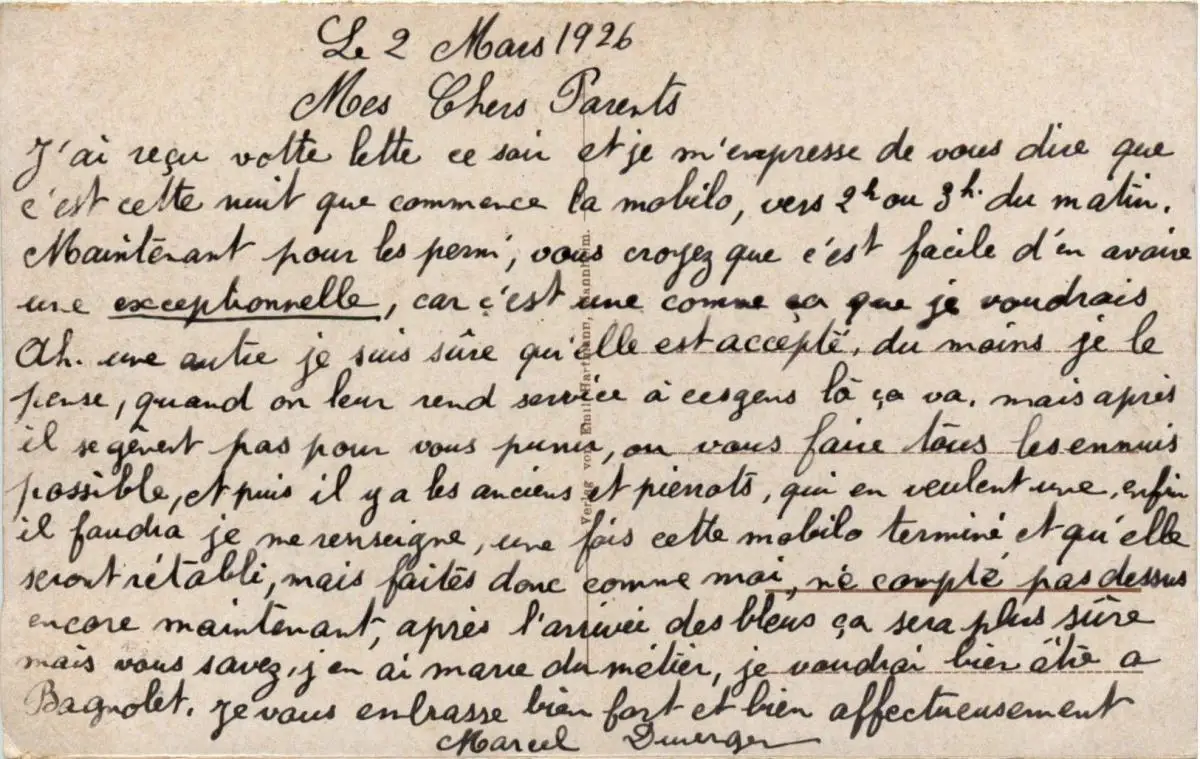 Le 2 Mars 1926
Mes Chers Parents
J'ai reçu votte lette ce soir et je m'empresse de vous dire que
c'est cette nuit que commence la mobilo, vers 2h ou 3h. du matin.
Maintenant pour les permi, vous croyez que c'est facile d'en avaire
une exceptionnelle, car c'est une comme ça que je voudrais
Ah. une autre je suis sûre qu'elle est accepté, du moins je le
pense, quand on leur rend service à ces gens là ça va, mais après
il se gênent pas pour vous punir, ou vous faire tous les ennuis
possible, et puis il y a les anciens et pierrots, qui en veulent une, enfin
il faudra je me renseigne, une fois cette mobilo terminé et qu'elle
seront rétabli, mais faites donc comme moi, n'e compté pas dessus
encore maintenant, après l'arrivée des bleus ça sera plus sûre
mais vous savez, j'en ai marre du métier, je voudrai bien être a
Bagnolet. Je vous enbrasse bien fort et bien affectueusement
Marcel
Verlag von Emil Hartmann, Mannheim.